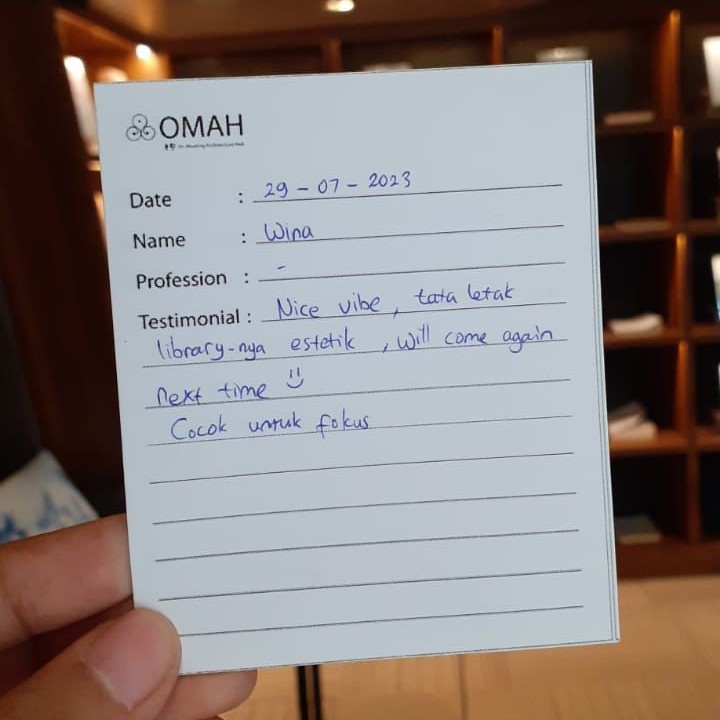 OMAH
Date : 29 - 07 - 2023
Name : Wina
Profession : -
Testimonial : Nice vibe, tata letak
library-nya estetik, will come again
next time :)
Cocok untuk fokus